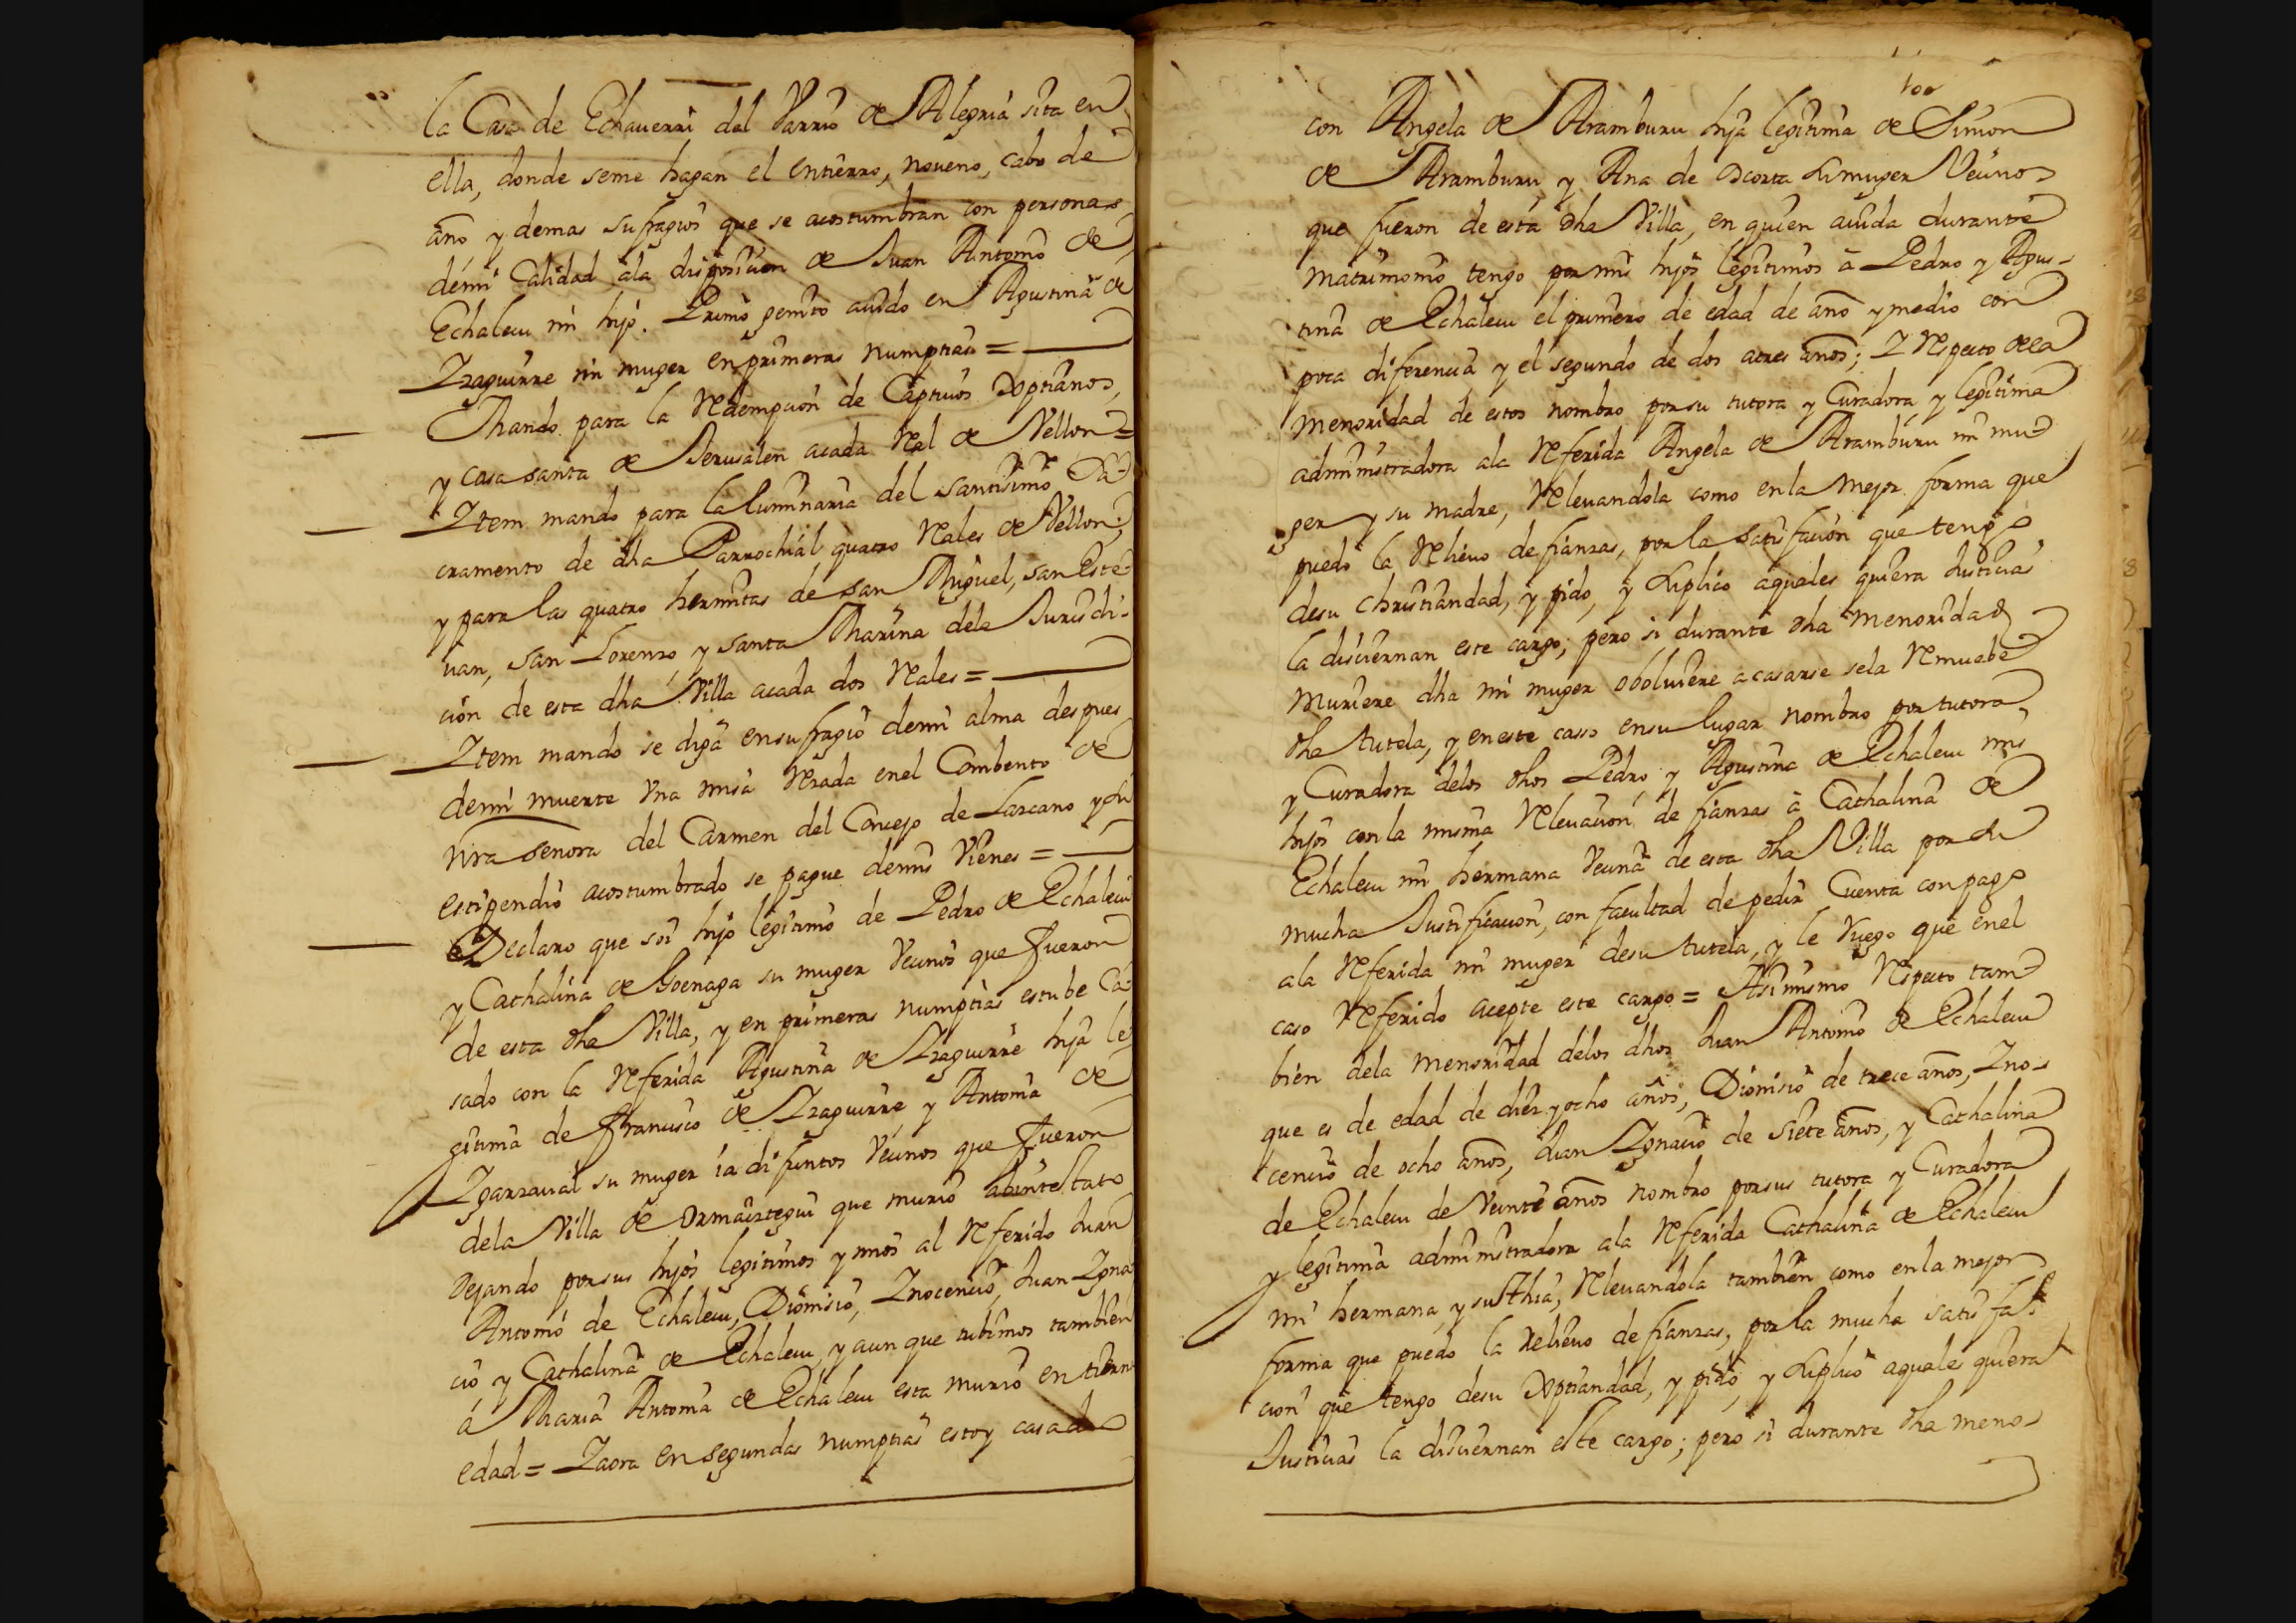 la Casa de Echauerri del Varrio de Alegria sita en
ella, donde seme hagan el entierro, noueno, cabo de
año y demas sufragios que se acostumbran con personas
demi Calidad ala disposicion de Juan Antonio de
Echaleu mi hijo Primo genito auido en Agustina de
Yzaguirre mi muger enprimeras numptias =
Mando para la Redempcion de Captiuos Xptianos,
y casa santa de Jerusalen acada Real de Vellon =
Ytem mando para la luminaria del santisimo Sa-
cramento de dha Parrochial quatro Reales de Vellon,
y para las quatro hermitas de san Miguel, san Este-
uan, san Lorenzo, y santa Marina dela Jurisdi-
cion de esta dha Villa acada dos Reales =
Ytem mando se diga ensufragio demi alma despues
demi muerte Vna misa Rezada enel Combento de
nra senora del Carmen del Concejo de Lazcano y su
estipendio acostumbrado se pague demis Vienes =
Declaro que soi hijo legitimo de Pedro de Echaleu
y Cathalina de Goenaga su muger Vecinos que fueron
de esta dha Villa, y en primeras numptias estube Ca-
sado con la Referida Agustina de Yzaguirre hija le-
gitima de Francisco de Yzaguirre, y Antonia de
Ygarzaual su muger ia difuntos Vecinos que fueron
dela Villa de Ormaiztegui que murio abintestato
Dejando por sus hijos legitimos y mios al Referido Juan
Antonio de Echaleu, Dionisio, Ynocencio, Juan Ygna-
cio y Cathalina de Echaleu, y aunque tubimos tambien
á Maria Antonia de Echaleu esta murio en tierna
edad = Yaora en segundas numptias estoy casado
100
con Angela de Aramburu hija legitima de Simon
de Aramburu, y Ana de Dorta su muger Vecinos
que fueron de esta dha Villa, en quien auida durante
matrimonio tengo por mis hijos legitimos á Pedro y Agus-
tina de Echaleu el primero de edad de año y medio con
poca diferencia y el segundo de dos atres años; Y Respecto dela
menoridad de estos nombro por su tutora y Curadora y legitima
administradora ala Referida Angela de Aramburu mi mu-
ger y su madre, Releuandola como enla mejor forma que
puedo la Relieuo de fianzas, por la satisfacion que tengo
desu christiandad, y pido, y suplico aquales quiera Justicias
la disciernan este cargo; pero si durante dha menoridad
muriere dha mi muger obolviere a casarse sela Remuebe
dha tutela, y eneste casso ensu lugar nombro por tutora,
y Curadora delos dhos Pedro, y Agustina de Echaleu mis
hijos con la misma Releuacion de fianzas á Cathalina de
Echaleu mi hermana Vecina de esta dha Villa por su
mucha Justificacion, con facultad de pedir Cuenta con pago
ala Referida mi muger desu tutela, y le Ruego que enel
caso Referido acepte este cargo = Asimismo Respecto tam-
bien dela menoridad delos dhos Juan Antonio de Echaleu
que es de edad de diez y ocho años, Dionisio de trece años, Yno-
cencio de ocho años, Juan Ygnacio de siete años, y Cathalina
de Echaleu de Veinte años nombro porsus tutora y Curadora
y legitima administradora ala Referida Cathalina de Echaleu
mi hermana, y su thia, Releuandola tambien como enla mejor
forma que puedo la relieuo de fianzas, por la mucha satisfa-
cion que tengo desu Xptiandad, y pido, y suplico aquales quiera
Justicias la disciernan este cargo; pero si durante dha meno-